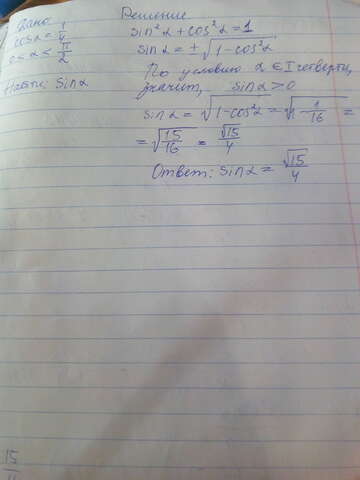 Дано:
cosα = 1/4
0 < α < π/2
Найти: sinα
Решение
sin²α + cos²α = 1
sinα = ±√(1-cos²α)
По условию α ∈ I четверти,
значит, sinα > 0
sinα = √(1-cos²α) = √(1-1/16) =
= √(15/16) = √15/4
Ответ: sinα = √15/4
15